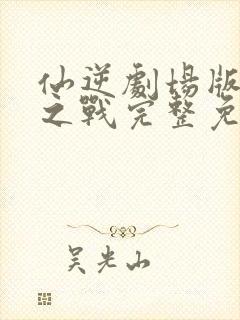 仙逆劇場版
之戰完整免
吴光山